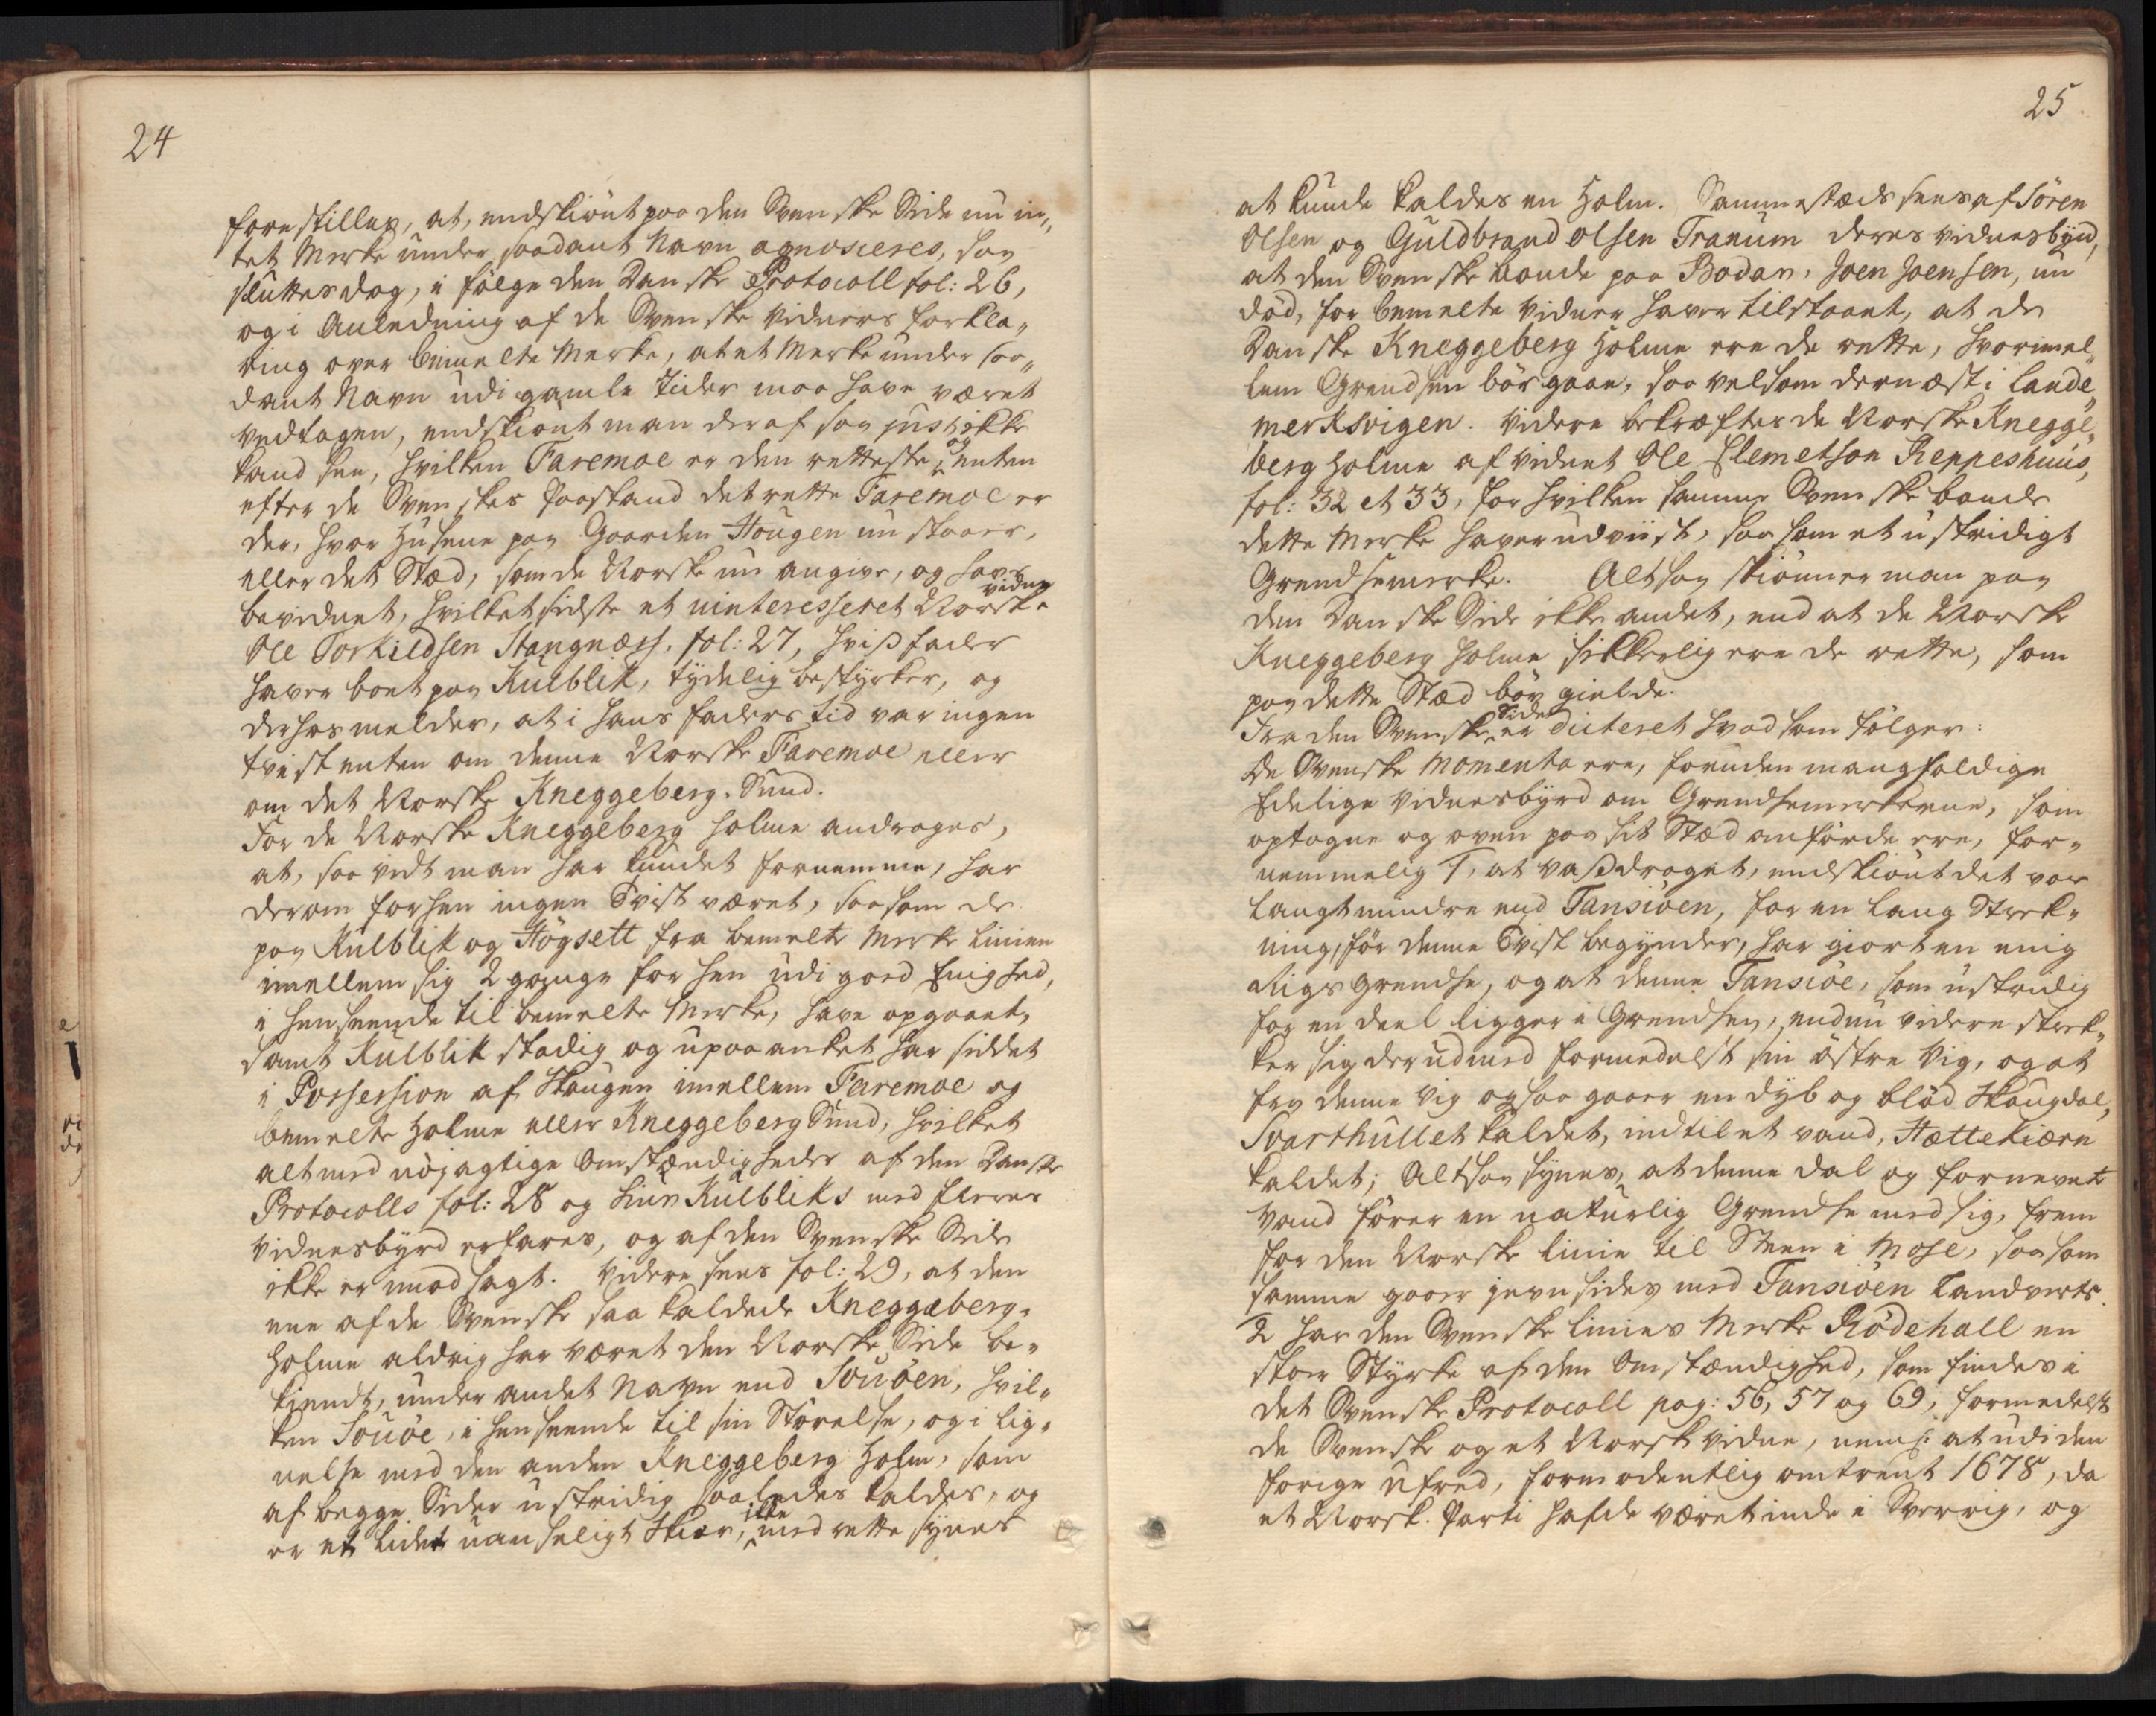 24
forestilles, at, endskiönt paa den Svenske Side nu in„
tet Merke under saadant Navn agnosceres, saa
sluttes dog, i fölge den Danske Protocoll fol: 26,
og i Anledning af de Svenske Vidners forkla„
ring over bemelte Merke, at et Merke under saa„
dant Navn udi gamle Tider maa have været
vedtagen, endskiönt man deraf saa just ikke
kand see, hvilken Faremoe er den retteste og enten
efter de Svenskes Paastand det rette Faremoe er
der, hvor Husene paa Gaarden Hougen nu staaer,
eller det Stæd, som de Norske nu angive, og have
bevidnet, hvilket sidste et uinteresseret Norske Vidne
Ole Torkildsen Stangnæss, fol: 27, hviss fader
haver boet paa Kulblik, tydelig bestyrker, og
derhos melder, at i hans faders tid var ingen
tvist enten om denne Norske Faremoe eller
om det Norske Kneggeberg-Sund.
For de Norske Kneggeberg holme andrages,
at, saa vidt man har kundet fornemme, har
derom forhen ingen Tvist været, saasom de
paa Kulblik og Högsett fra bemelte Merke Linien
imellem sig 2 gange forhen udi goed Enighed,
i henseende til bemelte Merke, have opgaaet,
samt Kulblik stadig og upaaanket har siddet
i Possession af Skougen imellem Faremoe og
bemelte Holme eller Kneggeberg Sund, hvilket
alt med nöjagtige Omstændigheder af den Danske
Protocolls fol: 28 og Siur Kulbliks med fleeres
Vidnesbyrd erfares, og af den Svenske Side
ikke er imodsagt. Videre sees fol: 29, at den
ene af de Svenske saa kaldede Kneggæberg-
Holme aldrig har været den Norske Side be-
kiendt, under andet Navn end Souöen, hvil„
ken Souöe, i henseende til sin Störelse, og i lig-
nelse med den anden Kneggeberg Holm, som
af begge Sider ustridig saaledes kaldes, og
er et lidet uanseligt Skiær, ikke med rette synes
25
at kunde kaldes en Holm. Sammestæds sees af Sören
Olsen og Guldbrand Olsen Tranum deres vidnesbyrd,
at den Svenske bonde paa Bodar, Joen Joensen, nu
död, for bemelte Vidner haver tilstaaet, at de
Danske Kneggeberg Holme ere de rette, hvorimel„
lem Grendsen bör gaae, saa vel som dernæst i Lande„
merksvigen. Videre bekræftes de Norske Knegge„
berg holme af vidnet Ole Clemetson Reppeshuus,
fol: 32 et 33, for hvilken samme Svenske bonde
dette Merke haver udviist, saasom et ustridigt
Grendsemerke. Altsaa skiönner man paa
den Danske Side ikke andet, end at de Norske
Kneggeberg holme sikkerlig ere de rette, som
paa dette Stæd bör gielde.
Fra den Svenske Side er dicteret hvad som fölger:
De Svenske Momenta ere, foruden mangfoldige
Edelige Vidnesbyrd om Grendsemerkerne, som
optagne og oven paa sit Stæd anförde ere, for-
nemmelig 1, at vassdraget, endskiönt det var
langt mindre end Tansiöen, for en lang Strek-
ning, för denne Tvist begynder, har giort en enig
Rigs Grendse, og at denne Tansiöe, som ustridig
for en deel ligger i Grendsen, endnu videre strek-
ker sig derudmed formedelst sin östre Vig, og at
fra denne Vig ogsaa gaaer en dyb og blöd Skougdal,
Svarthullet kaldet, indtil et vand, Hættekiærn
kaldet; Altsaa synes, at denne dal og fornevnte
Vand förer en naturlig Grendse med sig, frem
for den Norske linie til Steen i Mose, saasom
samme gaaer jevnsides med Tansiöen Landverts.
2 har den Svenske linies Merke Rödehall en
stor Styrke af den Omstændighed, som findes i
det Svenske Protocoll pag: 56, 57 og 69, formedelst
de Svenske og et Norsk vidne, neml: at udi den
forige Ufred, formodentlig omtrent 1678, da
et Norsk Parti hafde været inde i Sverrig, og